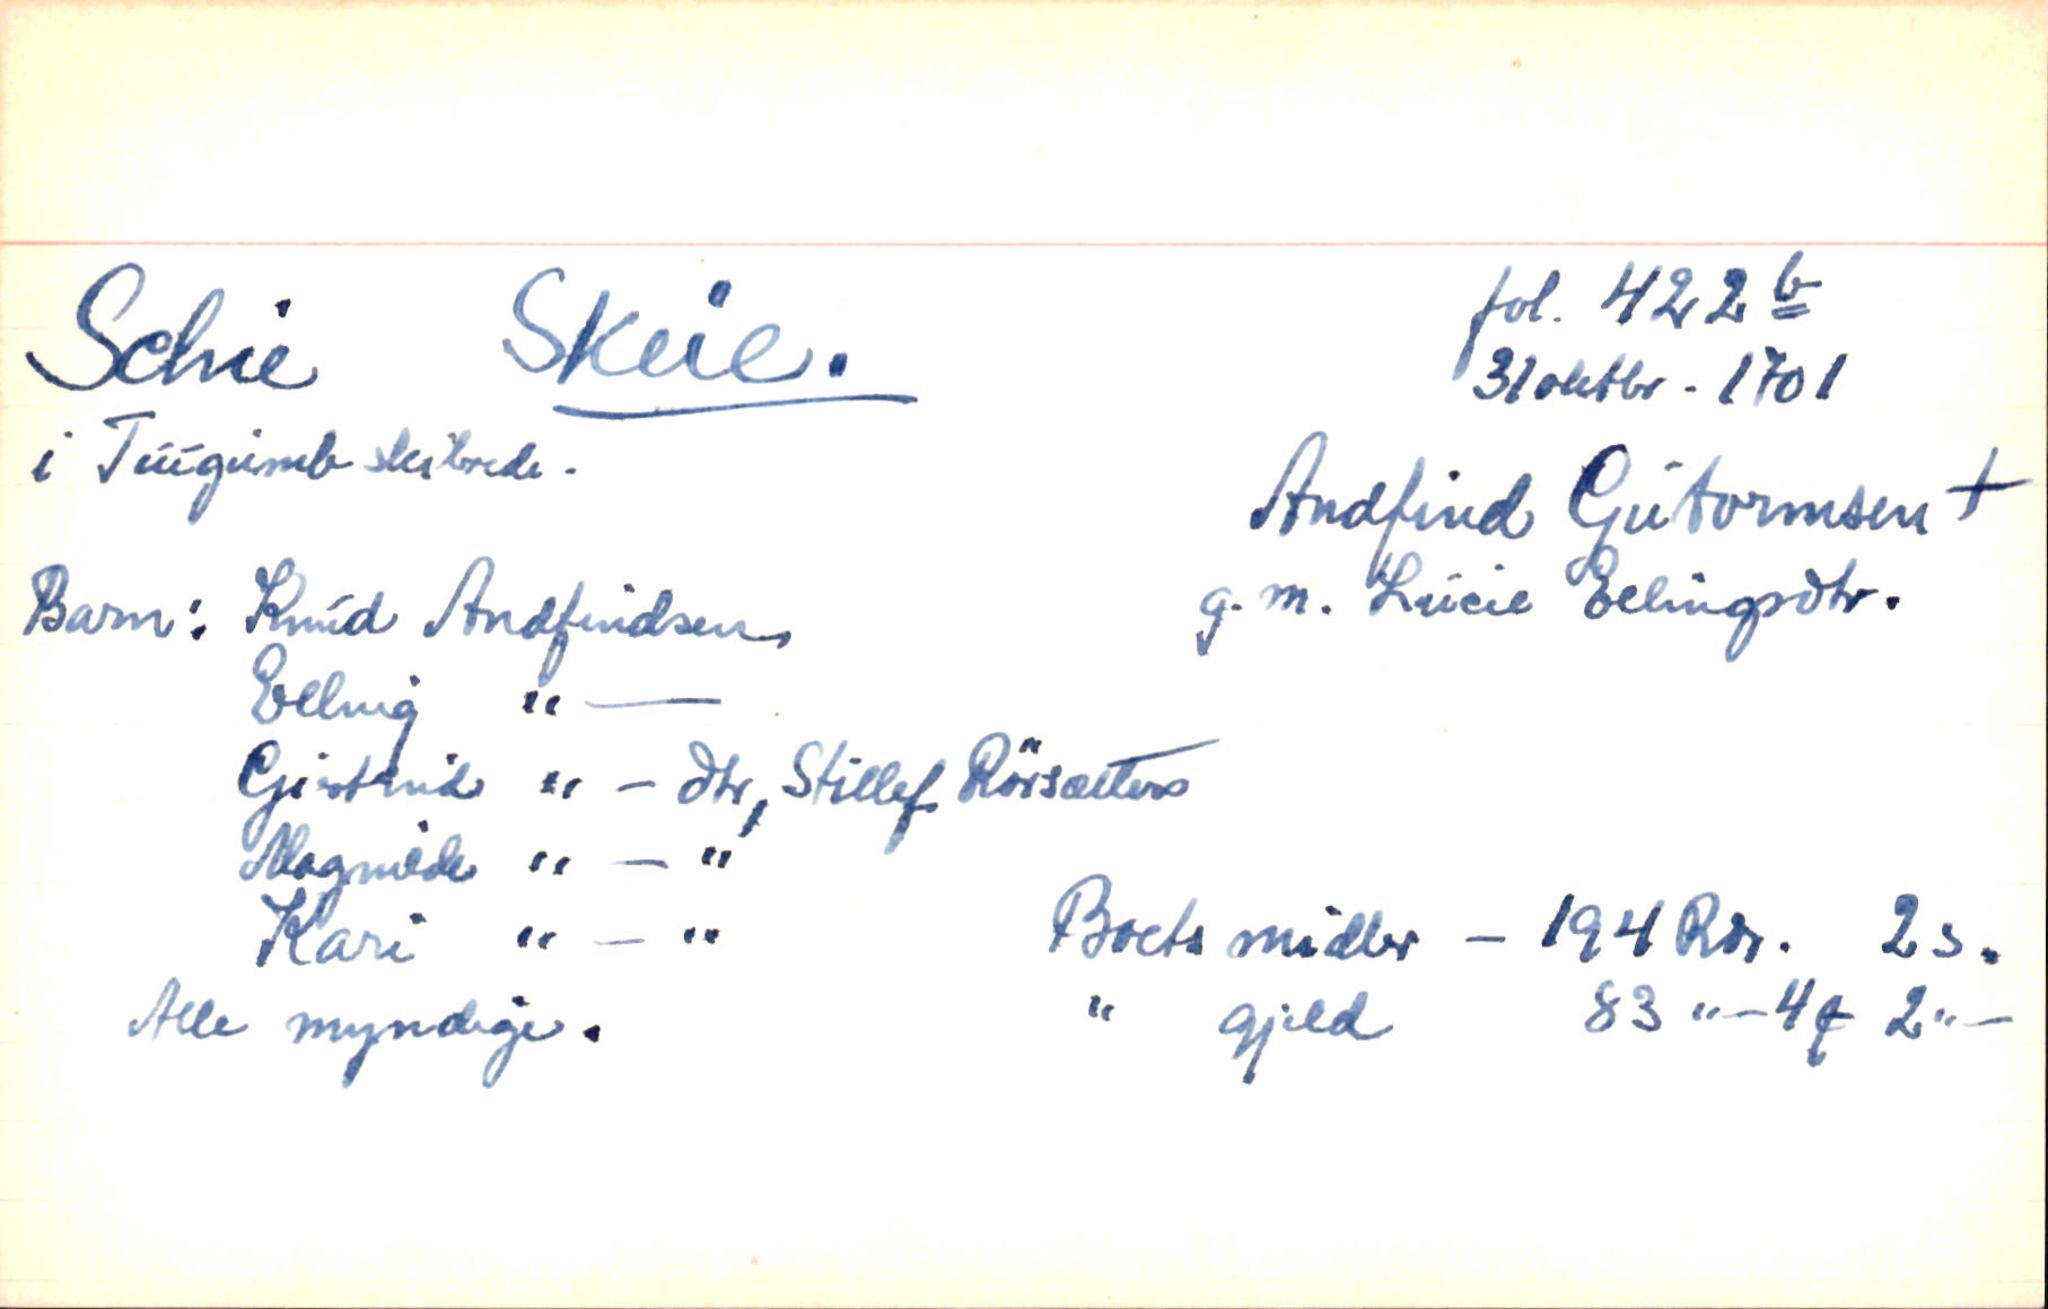 Schie Skeie. fol. 422 b
31 oktbr - 1701
i Tuugumb skibrede.
Andfind Gutormsen +
g. m. Lucie Ellingsdtr.
Barn: Knud Andfindsen
Elling " —
Gjertrud " — dtr, Stillef Rörsætters
Magnilde " — "
Kari " — "
Boets midler — 194 Rdr. 2 s.
Alle myndige.
" gjeld 83 " — 4 ₰ 2 " —